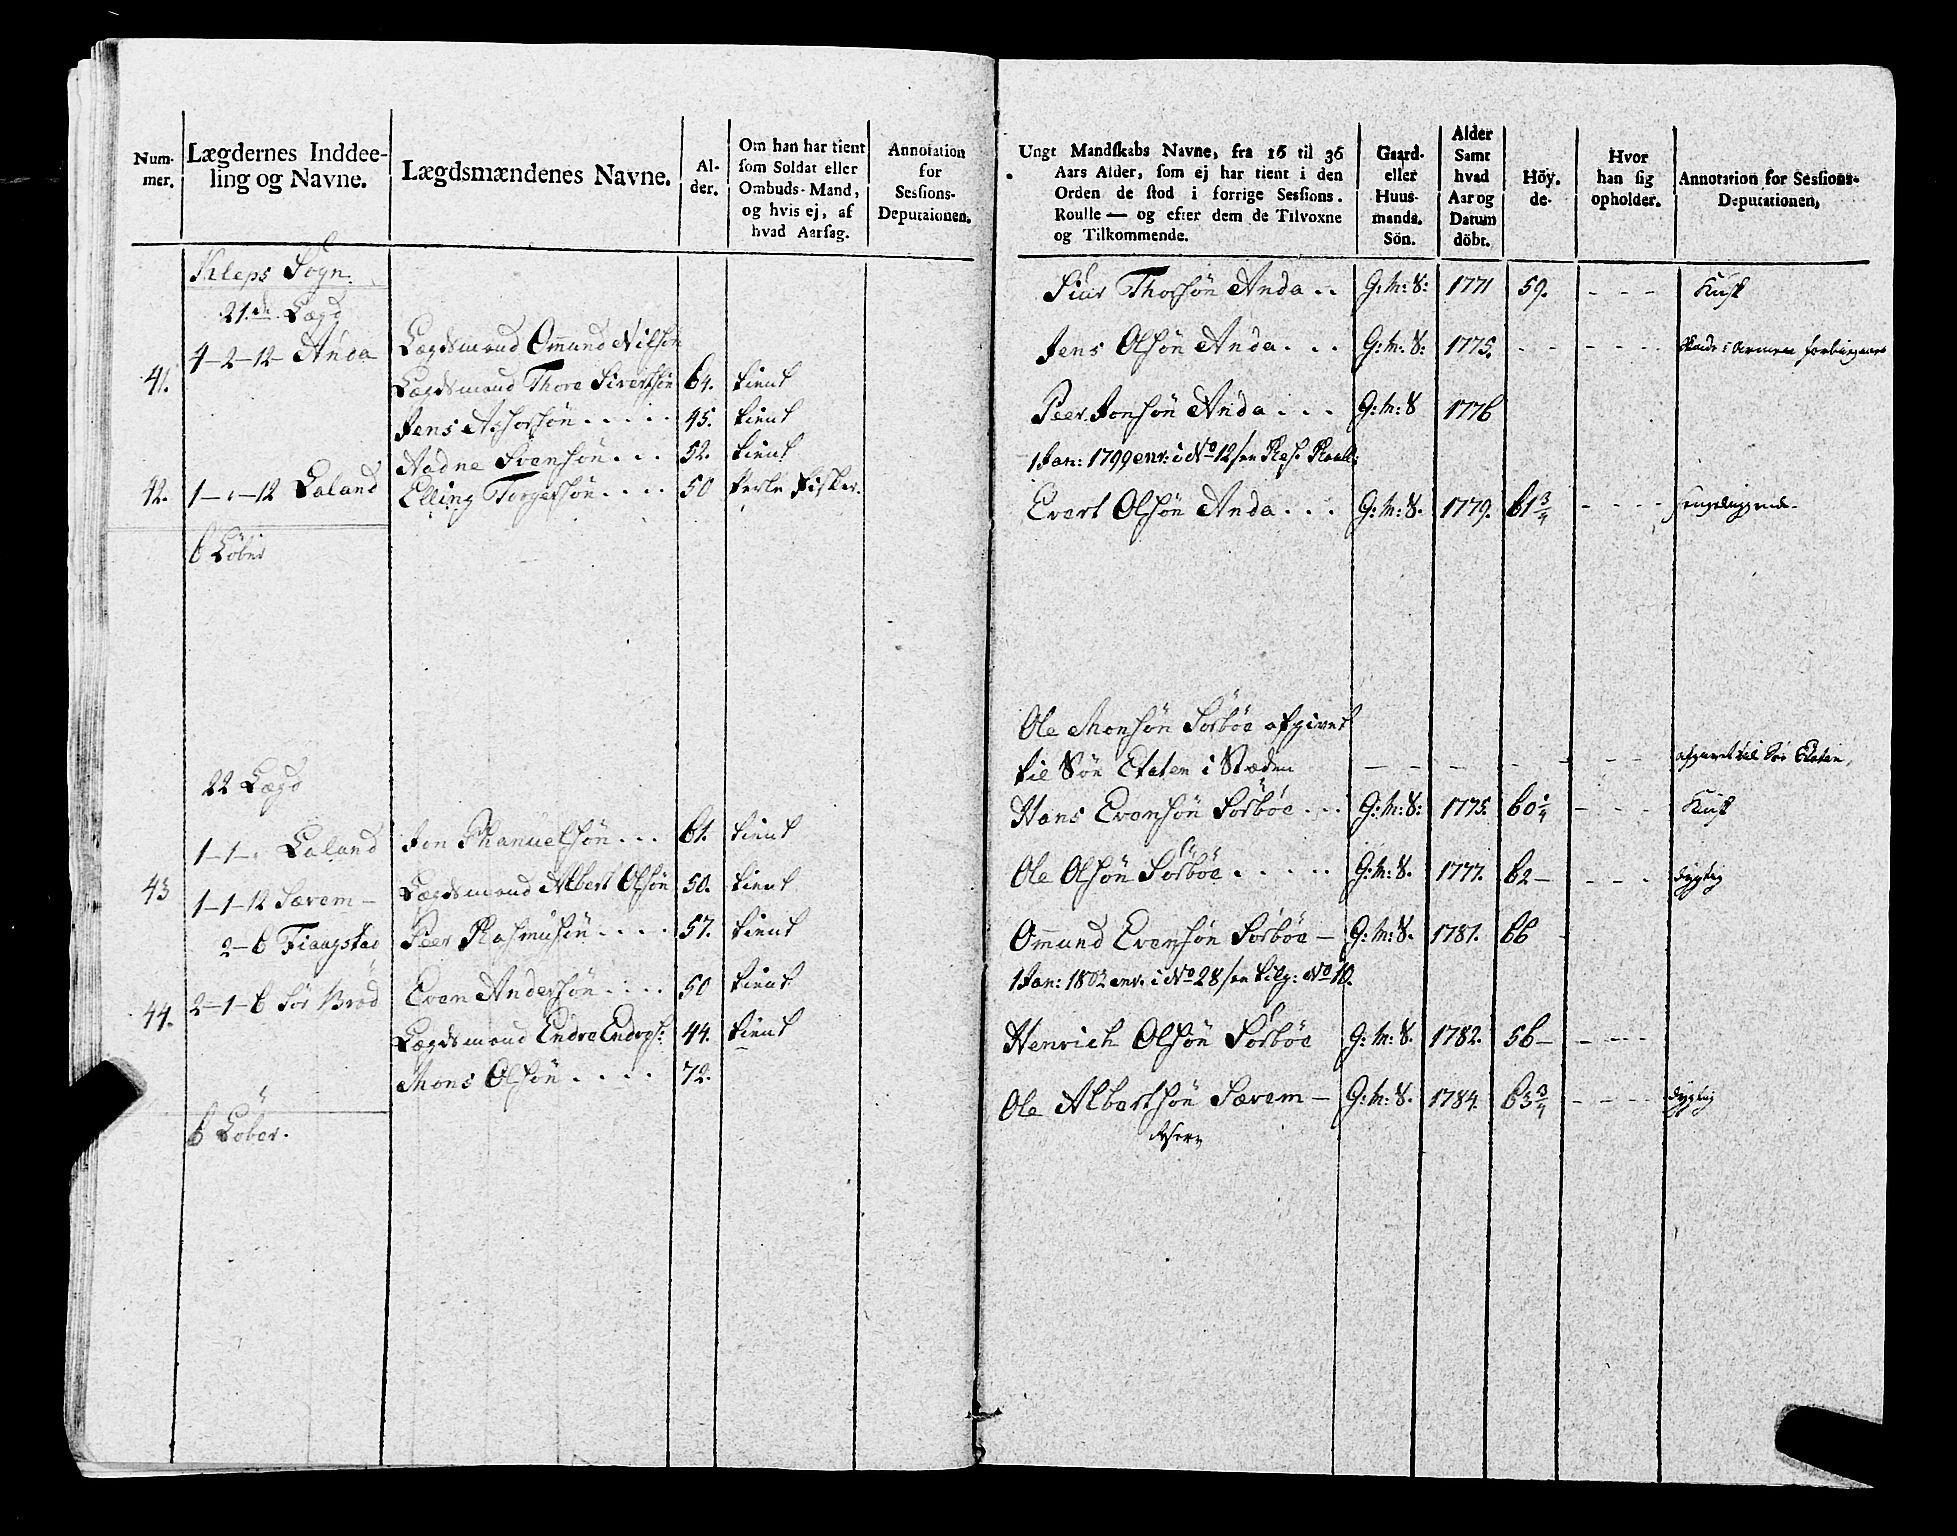 Num-
mer.
Lægdernes Inddee-
ling og Navne.
Lægdsmændenes Navne.
Al-
der.
Om han har tient
som Soldat eller
Ombuds-Mand,
og hvis ej, af
hvad Aarsag.
Annotation
for
Sessions-
Deputaionen.
Kleps Sogn.
21.de Lægd
4-2-12- Anda Lægdsmand Omund Nilsøn
41. Lægdsmand Thore Sivertsøn 64. tient
Jens Assorsøn 45. tient
Aadne Svensøn 52. tient
42. 1-"-12 Laland Elling Torgersøn 50 Perle Fisker.
6 Løber
22 Lægd
1-1-" Laland Jon Phanuelsøn 61. tient
43 1-1-12 Særem- Lægdsmand Albert Olsøn 50. tient
2-6 Fiaagstad Peer Rasmusøn 57. tient
2-1-6 Sør Brød Even Andersøn 50 tient
44. Lægdsmand Endre Endres: 44. tient
Mons Olsøn 72.
6 Løber.
Ungt Mandskabs Navne, fra 16 til 36
Aars Alder, som ej har tient i den
Orden de stod i forrige Sessions.
Roulle — og efter dem de Tilvoxne
og Tilkommende.
Gaard-
eller
Huus-
mands.
Sön.
Alder
Samt
hvad
Aar og
Datum
döbt.
Höy.
de-
Hvor
han sig
opholder.
Annotation for Sessions-
Deputationen,
Siur Thorsøn Anda G:M:S: 1771 59. - - - Kusk
Jens Olsøn Anda G:M:S: 1775. - - - - Armen
Peer Jonsøn Anda G:M:S 1776
1 Jan: 1799 enr: i No 12 Res. Roull:
Evert Olsøn Anda G:M:S. 1779. 61 3/4 - - - -
Ole Monsøn Sørbøe afgivet
til Søe Etaten i Stæden - - - - - - - afgivet til Søe Etaten.
Hans Evensøn Sørbøe G:M:S: 1775. 60 1/4 - - - Kusk
Ole Olsøn Sørbøe G:M:S. 1777. 62- - - - dygtig
Omund Evensøn Sørbøe - G:M:S. 1781. 66
1 Jan: 1802 enr. i No 28 tilg: No 10.
Henrich Olsøn Sørbøe G:M:S. 1782. 56- - - -
Ole Albertsøn Særem - G:M:S. 1784. 63 3/4 - - - - dygtig
Reserv